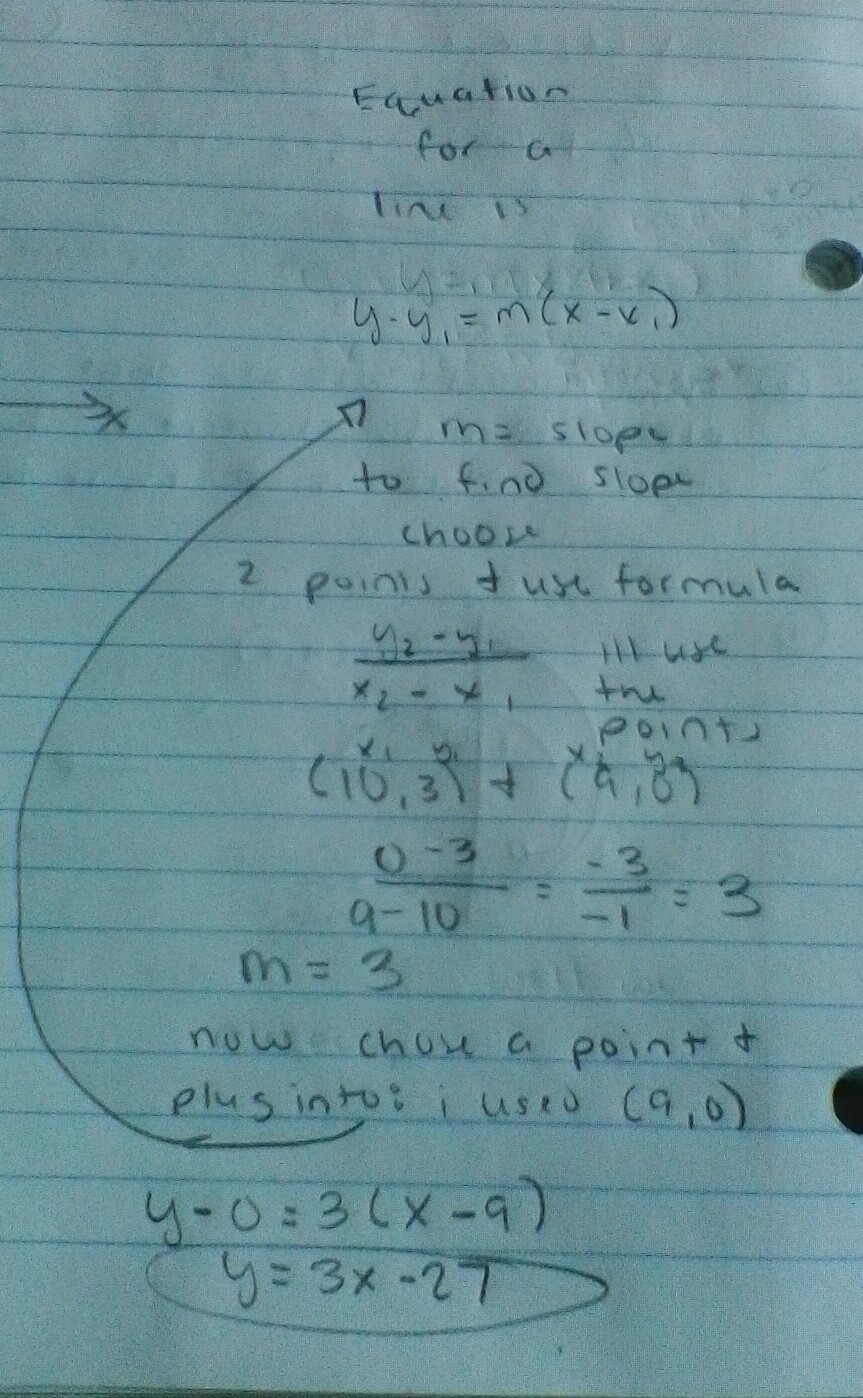 Equation
for a
line is
y-y₁=m(x-x₁)
x
m= slope
to find slope
choose
2 points + use formula
y₂-y₁ / x₂-x₁
ill use
the
points
x₁ y₁ x₂ y₂
(10,3) + (9,0)
0-3 / 9-10 = -3 / -1 = 3
m = 3
now chose a point +
plug into: i used (9,0)
y-0=3(x-9)
y=3x-27